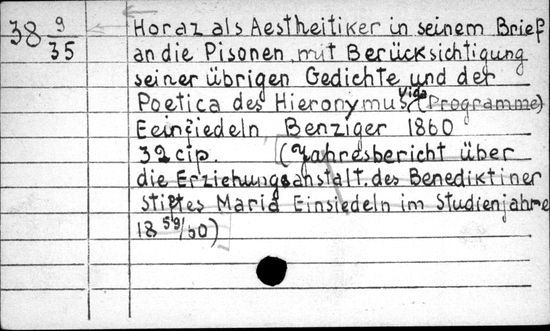 38 9/35
Horaz als Aestheitiker in seinem Brief
an die Pisonen, mit Berücksichtigung
seiner übrigen Gedichte und der
Poetica des Hieronymus Vida (Programme)
Eeinsiedeln Benziger 1860
32 cip. (Jahresbericht über
die Erziehungsanstalt des Benediktiner
stiftes Maria Einsiedeln im Studienjahre
18 59/60)